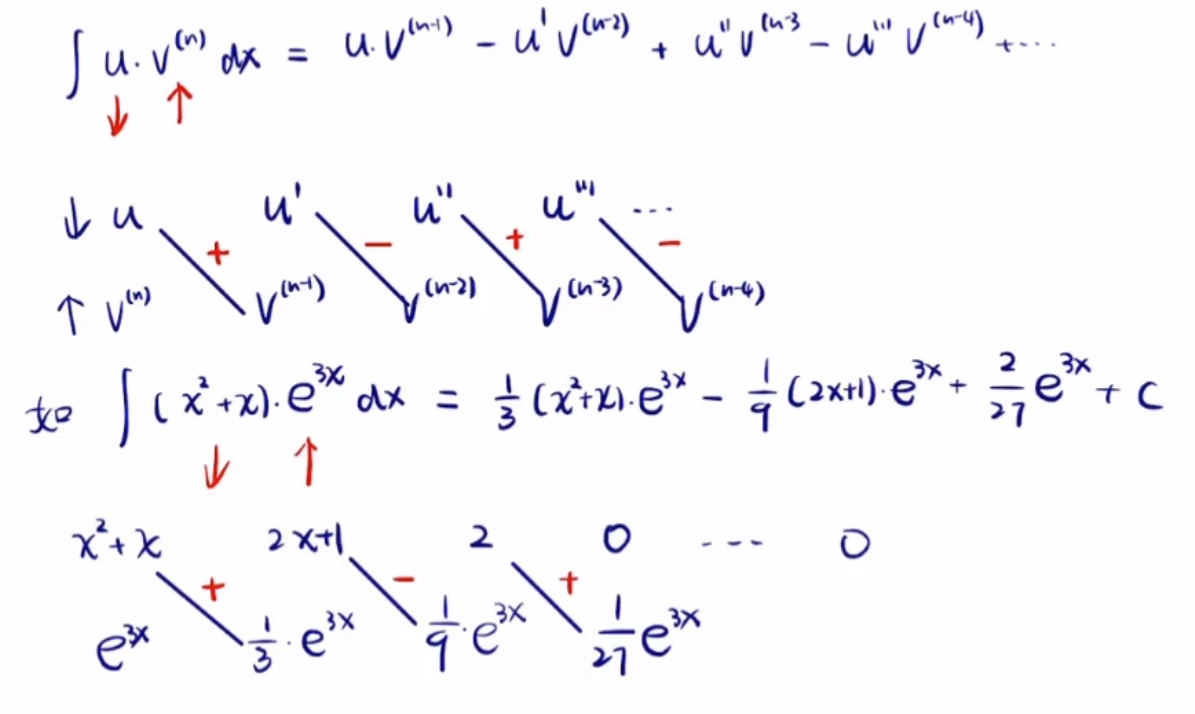 ∫ u·v^(n) dx = u·v^(n-1) - u'v^(n-2) + u''v^(n-3 - u'''v^(n-4) + ···
↓ ↑
↓ u u' u'' u''' ···
+ - + -
↑ v^(n) v^(n-1) v^(n-2) v^(n-3) v^(n-4)
如 ∫ (x²+x)·e^3x dx = 1/3 (x²+x)·e^3x - 1/9 (2x+1)·e^3x + 2/27 e^3x + C
↓ ↑
x²+x 2x+1 2 0 ---- 0
+ - +
e^3x 1/3·e^3x 1/9·e^3x 1/27 e^3x